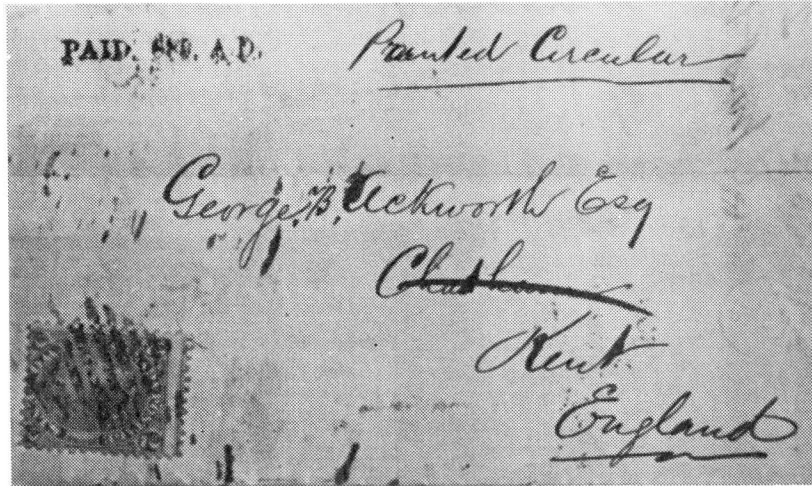 PAID. A D. Printed Circular
George. B. Ackworth Esq
Chatham
Kent
England